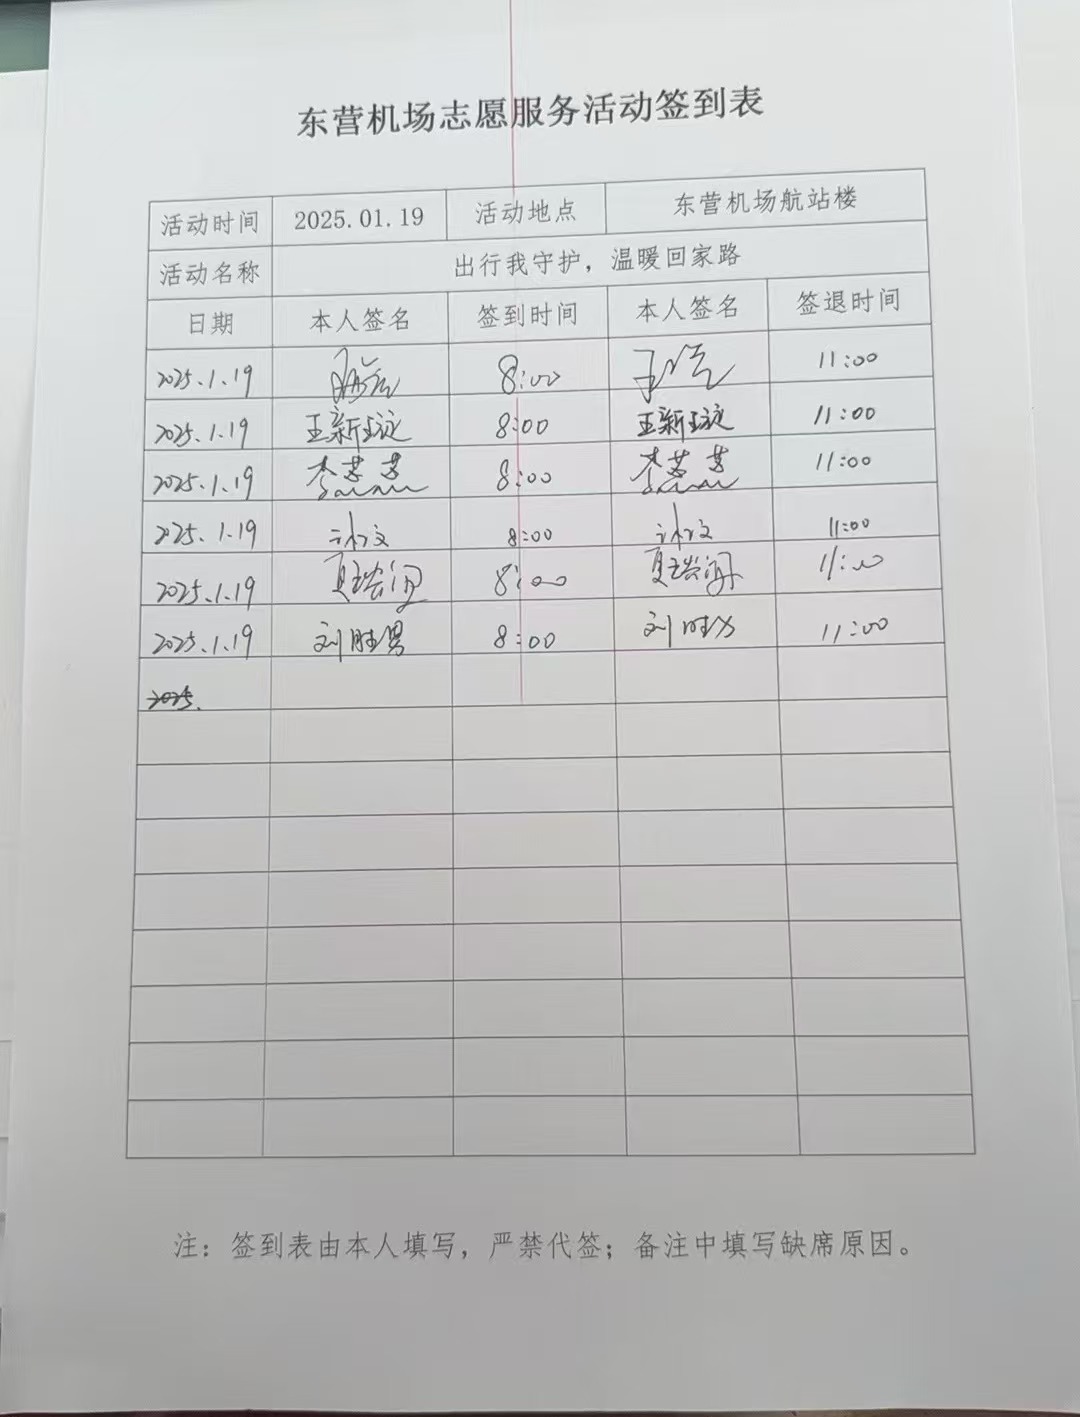 东营机场志愿服务活动签到表
活动时间 2025.01.19 活动地点 东营机场航站楼
活动名称 出行我守护，温暖回家路
日期 本人签名 签到时间 本人签名 签退时间
2025.1.19 8:00 11:00
2025.1.19 王新 8:00 王新 11:00
2025.1.19 李 8:00 李 11:00
2025.1.19 许文 8:00 许文 11:00
2025.1.19 夏瑞 8:00 夏瑞 11:00
2025.1.19 刘胜男 8:00 刘胜男 11:00
2025.
注：签到表由本人填写，严禁代签；备注中填写缺席原因。